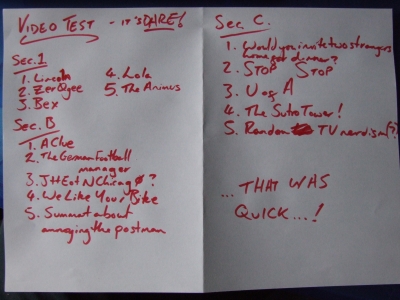 VIDEO TEST - IT'S DARE!
Sec. 1
1. Lincoln
2. ZerQgee
3. Bex
4. Lola
5. The Animus
Sec. B
1. A Clue
2. The German Football
manager
3. JHEotNChicago?
4. We Like Your Bike
5. Summat about
annoying the postman
Sec C.
1. Would you invite two strangers
home for dinner?
2. STOP STOP
3. U of A
4. The Sutro Tower!
5. Random TV nerdism(?)
... THAT WAS
QUICK...!